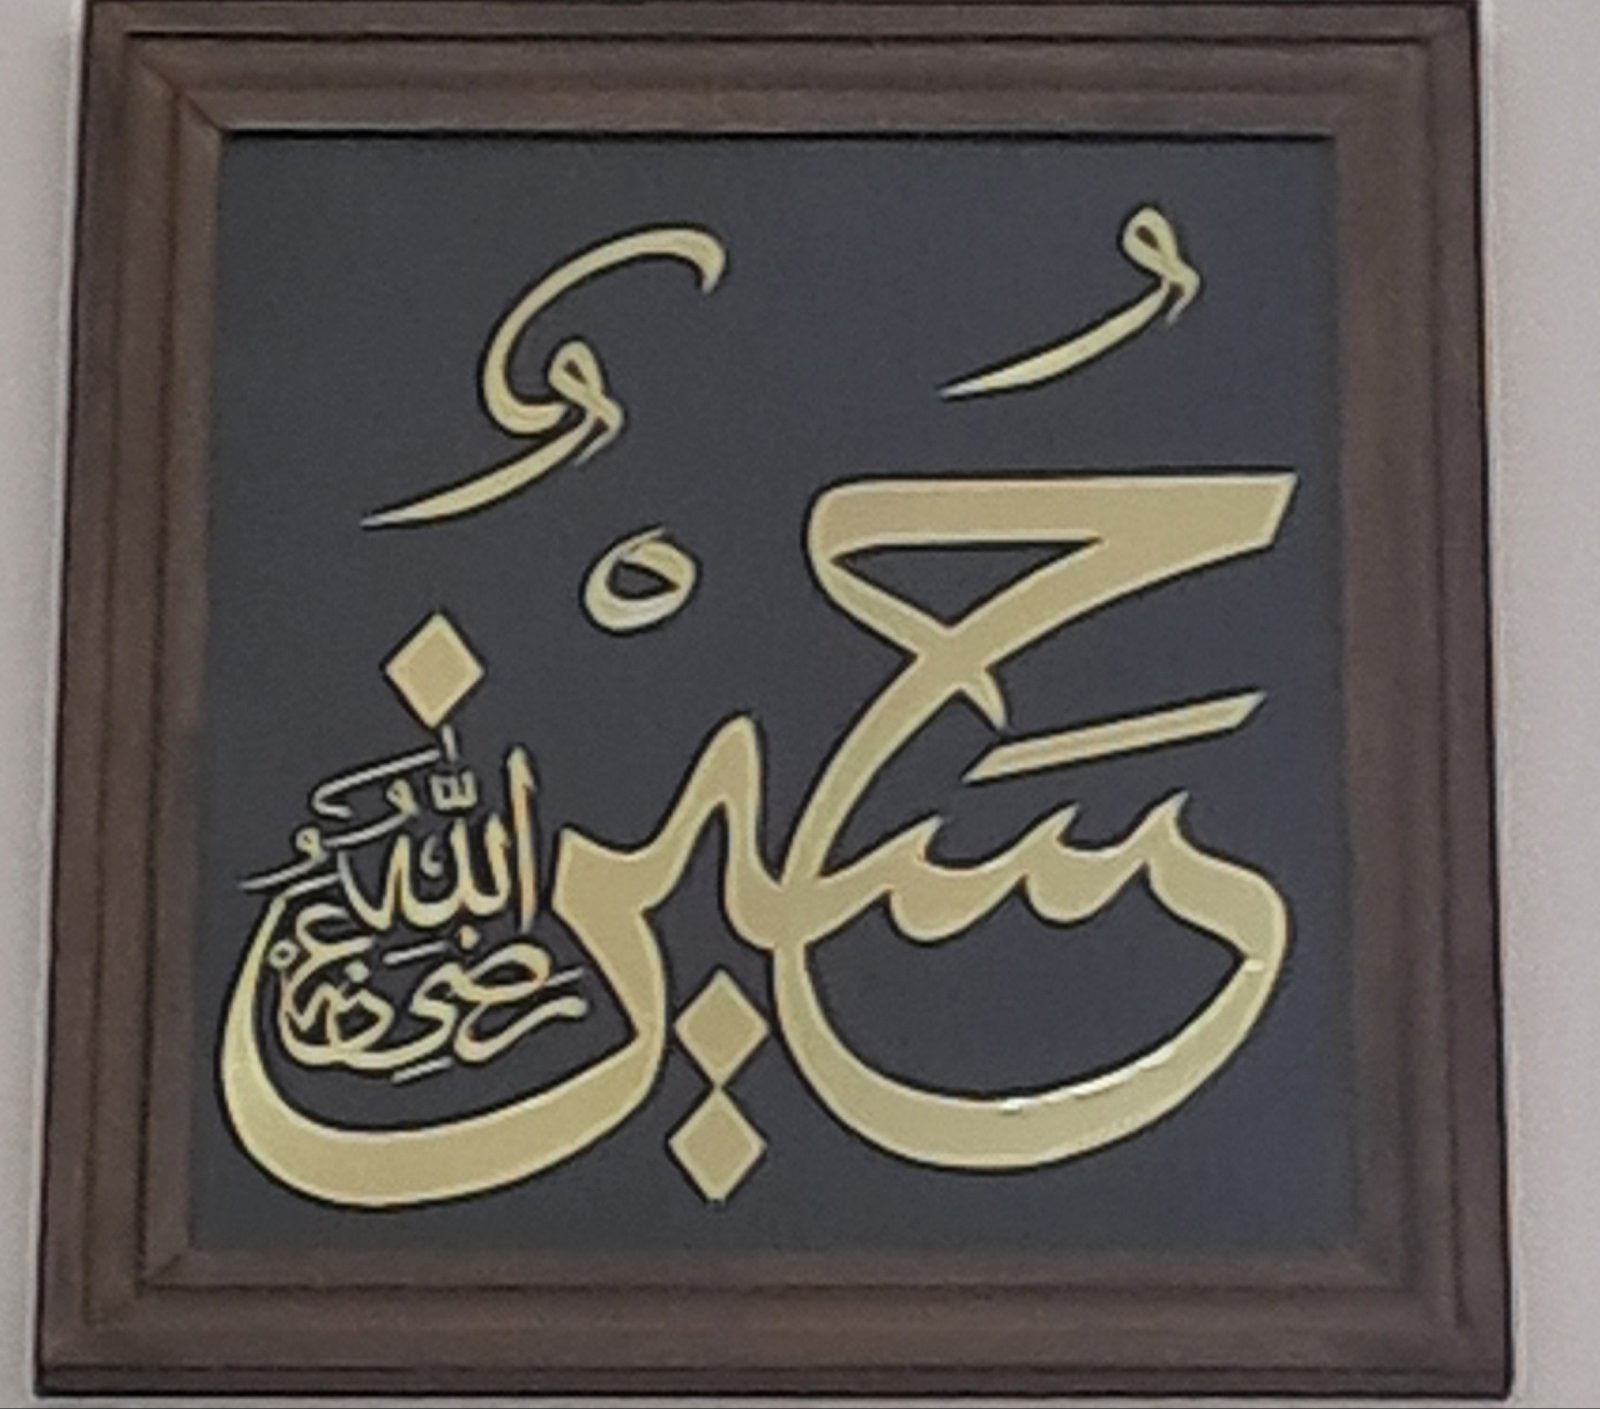 حُسَيْنٌ
رَضِيَ اللّٰهُ عَنْهُ